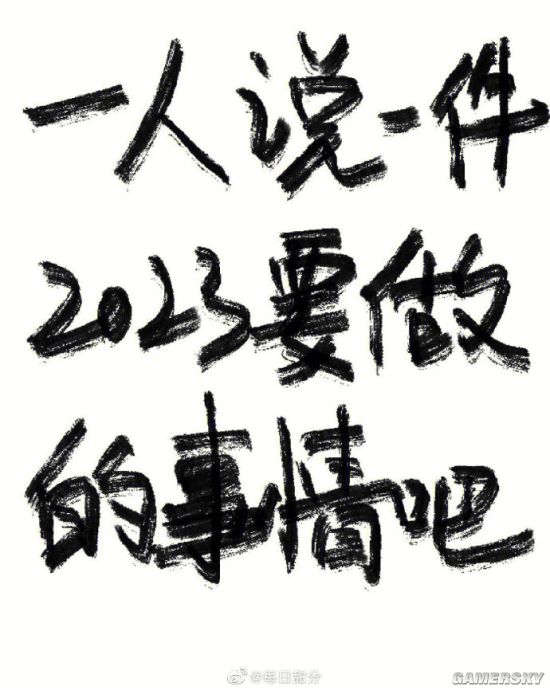 一人说一件
2023要做
的事情吧
@每日甜分
GAMERSKY